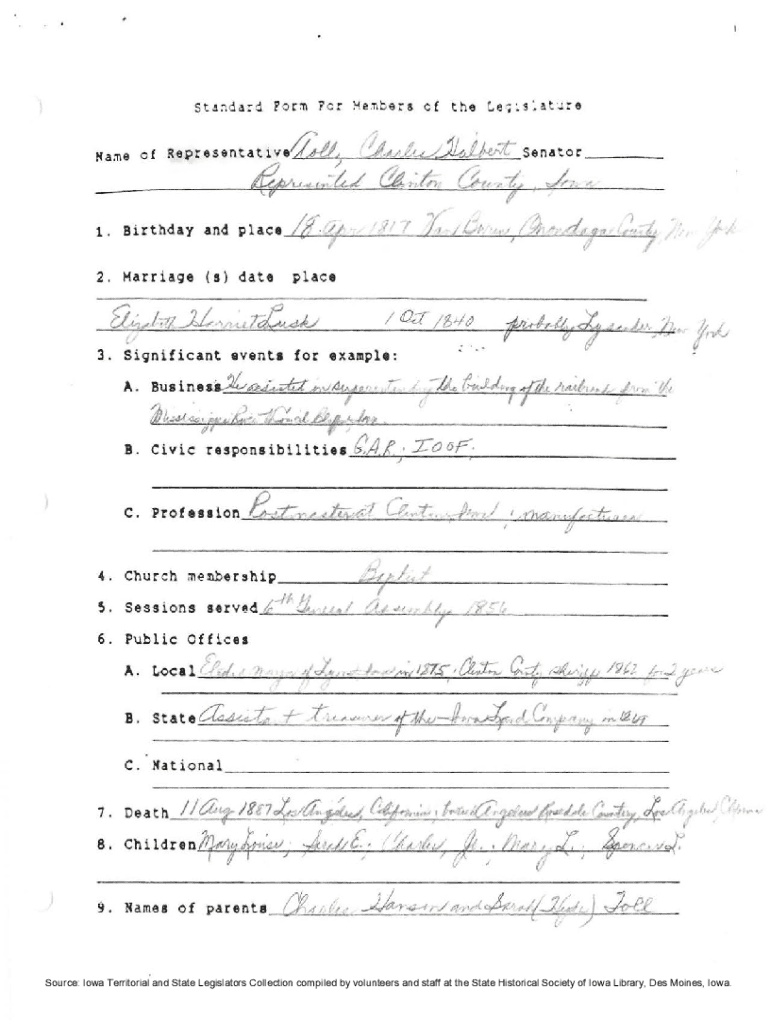 1
Standard Form For Members of the Legislature
Name of Representative Toll, Charles Halbert Senator
Represented Clinton County, Iowa
1. Birthday and place 18 Apr 1817 Van Buren, Onondaga County, New York
2. Marriage (s) date place
Elizabeth Harriet Lusk 1 Oct 1840 probably Lysander, New York
3. Significant events for example:
A. Business He assisted in superintending the building of the railroad from the
Mississippi River
B. Civic responsibilities G.A.R.; IOOF;
C. Profession Postmaster at Clinton, Iowa; manufacturer
4. Church membership Baptist
5. Sessions served 6th General Assembly 1856
6. Public Offices
A. Local Elected mayor of Lyons Iowa in 1875; Clinton County sheriff 1862 for 2 years
B. State Assist. + treasurer of the Iowa Land Company in
C. National
7. Death 11 Aug 1887 Los Angeles, California; buried Angelus Rosedale Cemetery, Los Angeles, California
8. Children Mary Louise; Sarah E.; Charles, Jr.; Mary L.; Spencer L.
9. Names of parents Charles Hansen and Sarah (Hyde) Toll
Source: Iowa Territorial and State Legislators Collection compiled by volunteers and staff at the State Historical Society of Iowa Library, Des Moines, Iowa.